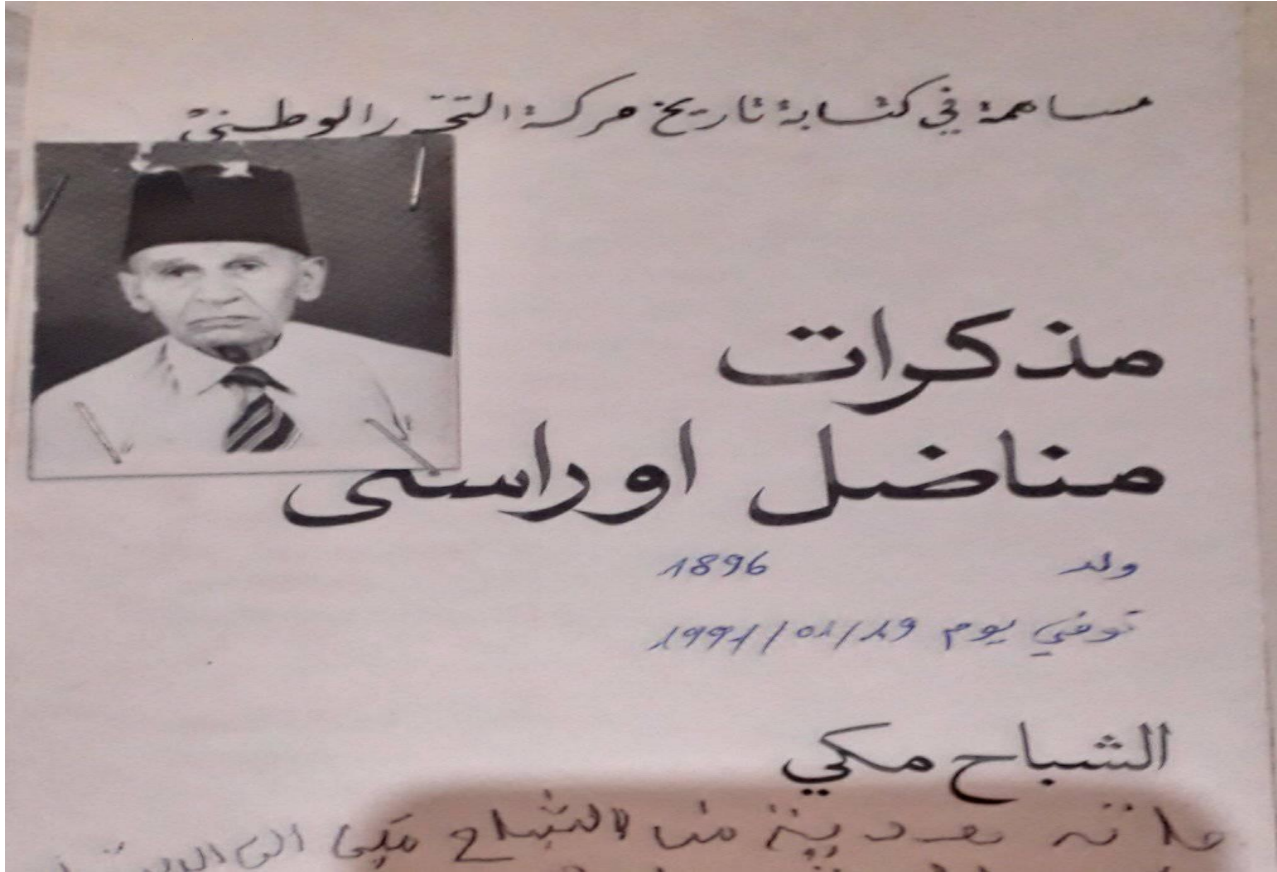 مساهمة في كتابة تاريخ حركة التحرر الوطني
مذكرات
مناضل اوراسي
ولد 1896
توفي يوم 19/01/1991
الشباح مكي
من الشباح مكي الى